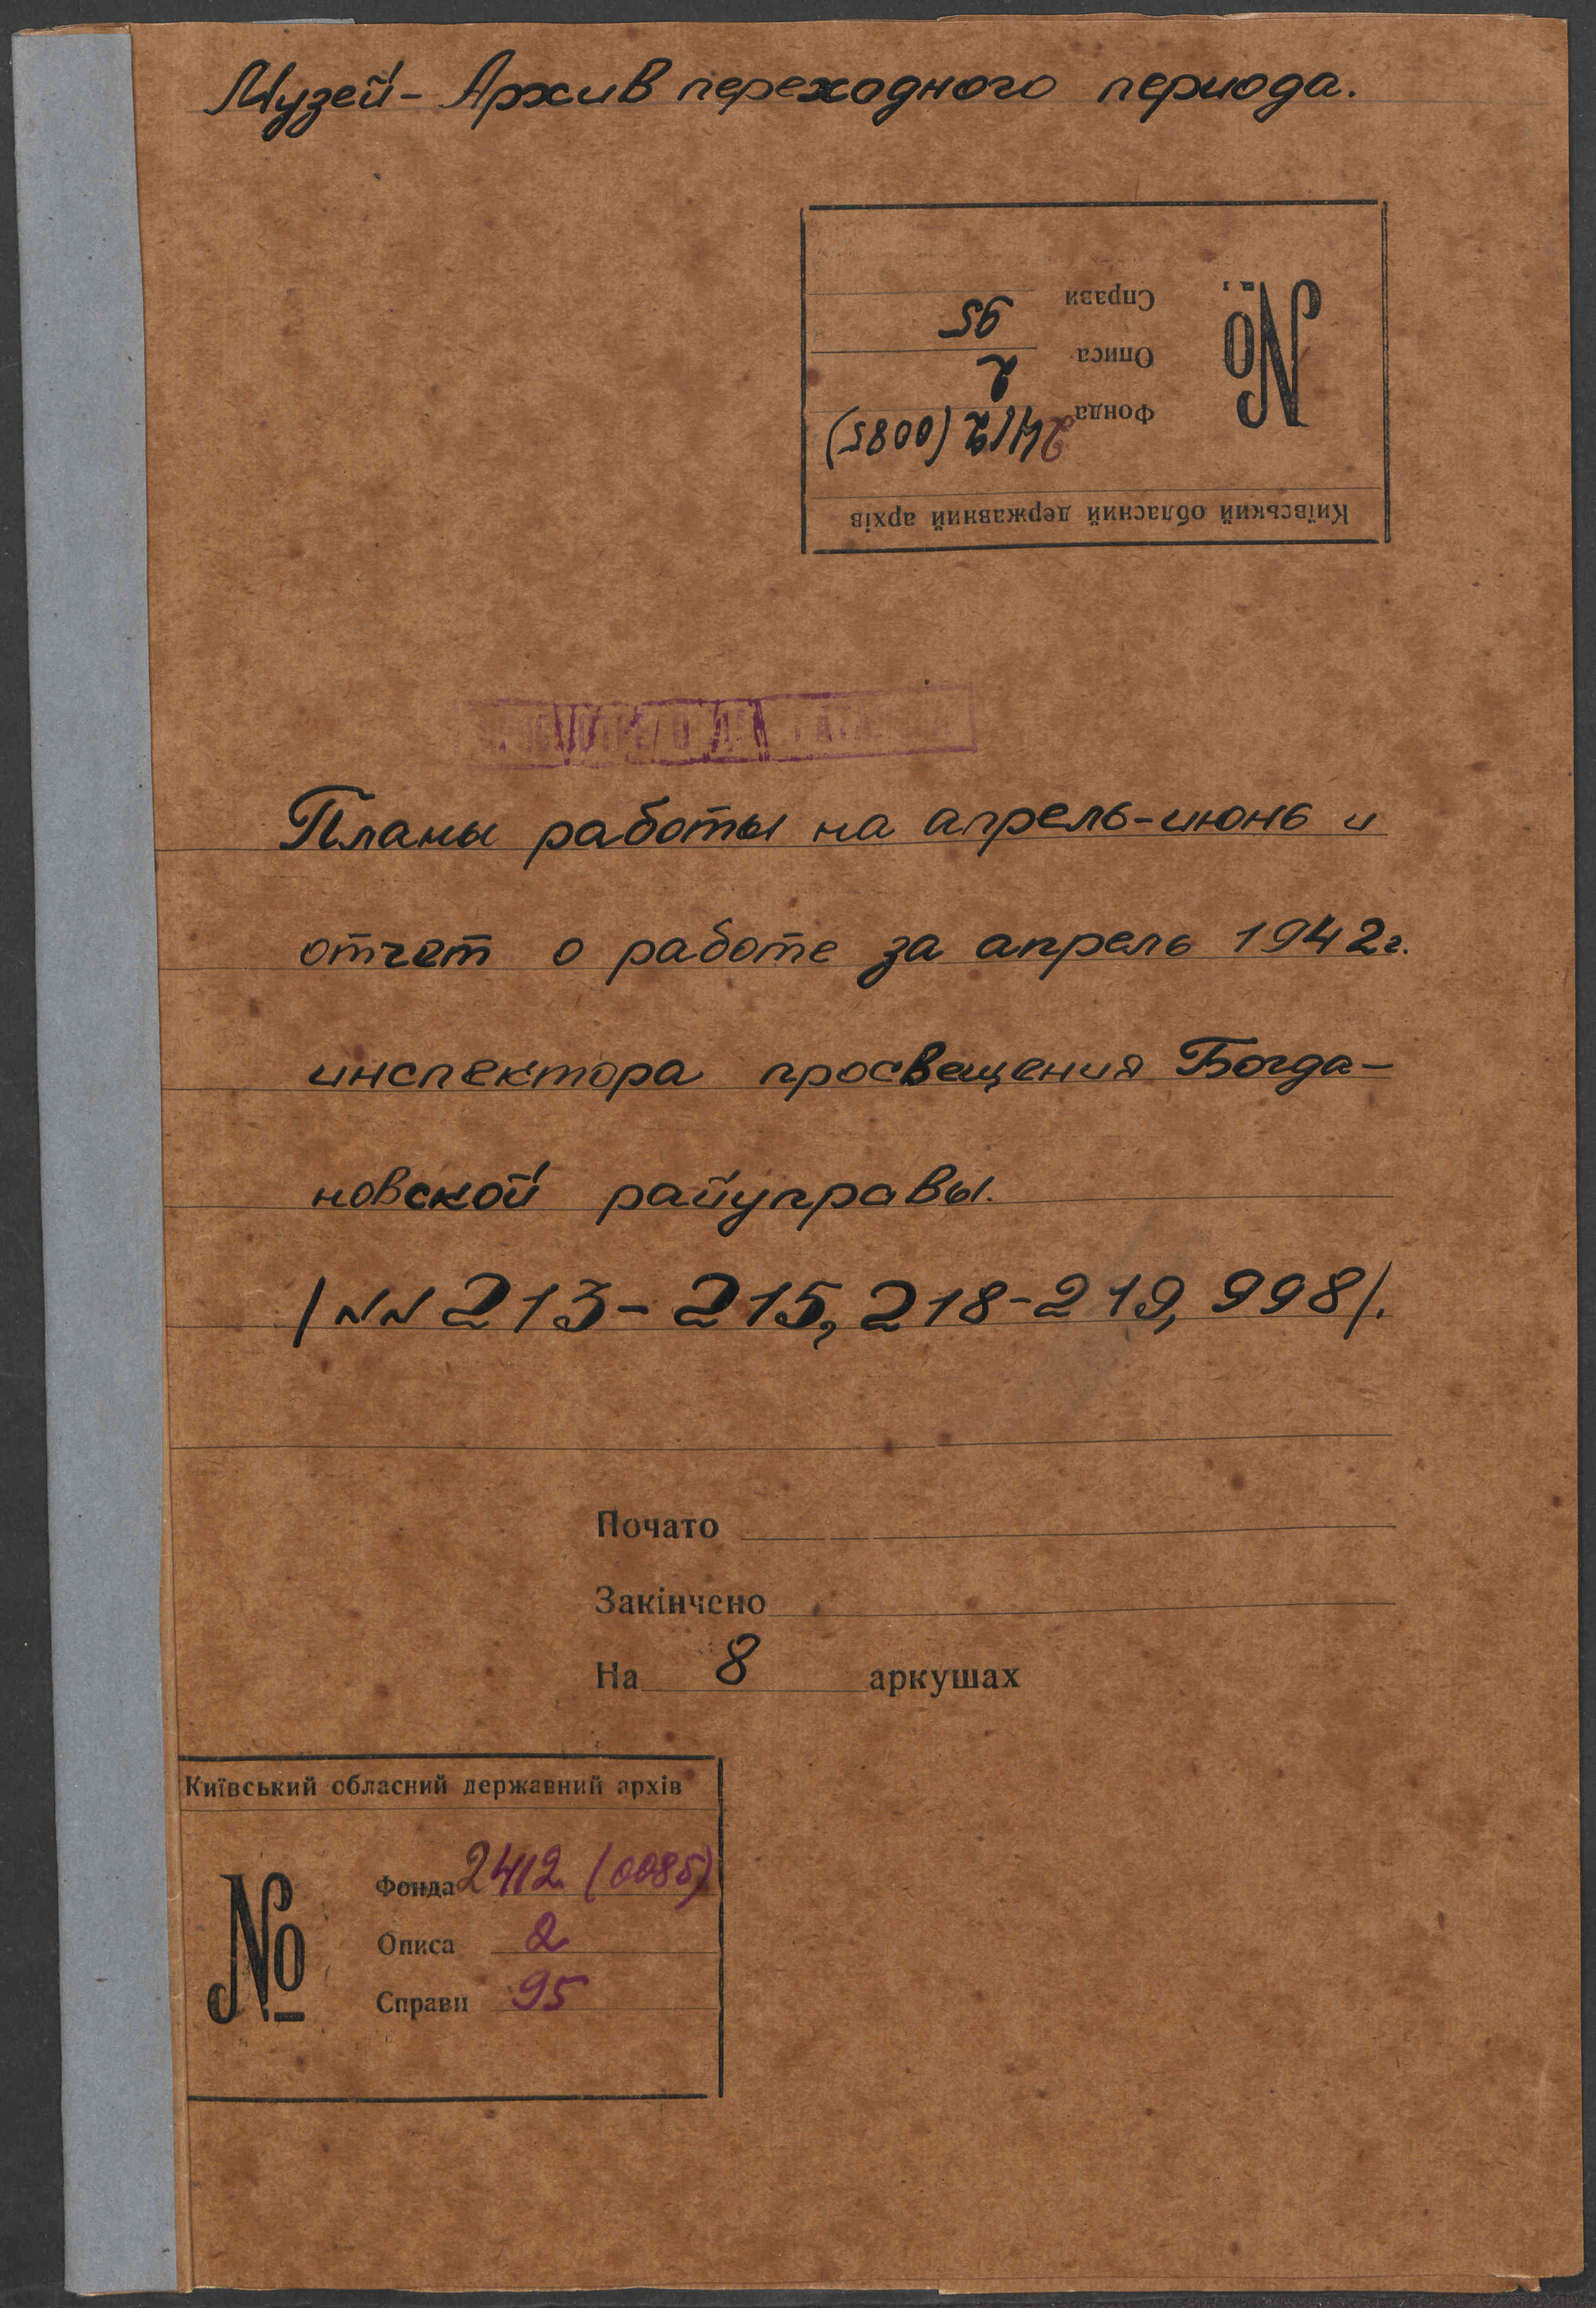 Музей-Архив переходного периода.
Київський обласний державний архів
№
Фонда 2412 (0085)
Описа 2
Справи 95
Планы работы на апрель-июнь и
отчет о работе за апрель 1942г.
инспектора просвещения Богда-
новской райуправы.
/NN 213-215, 218-219, 998/.
Почато
Закінчено
На 8 аркушах
Київський обласний державний архів
№
Фонда 2412 (0085)
Описа 2
Справи 95